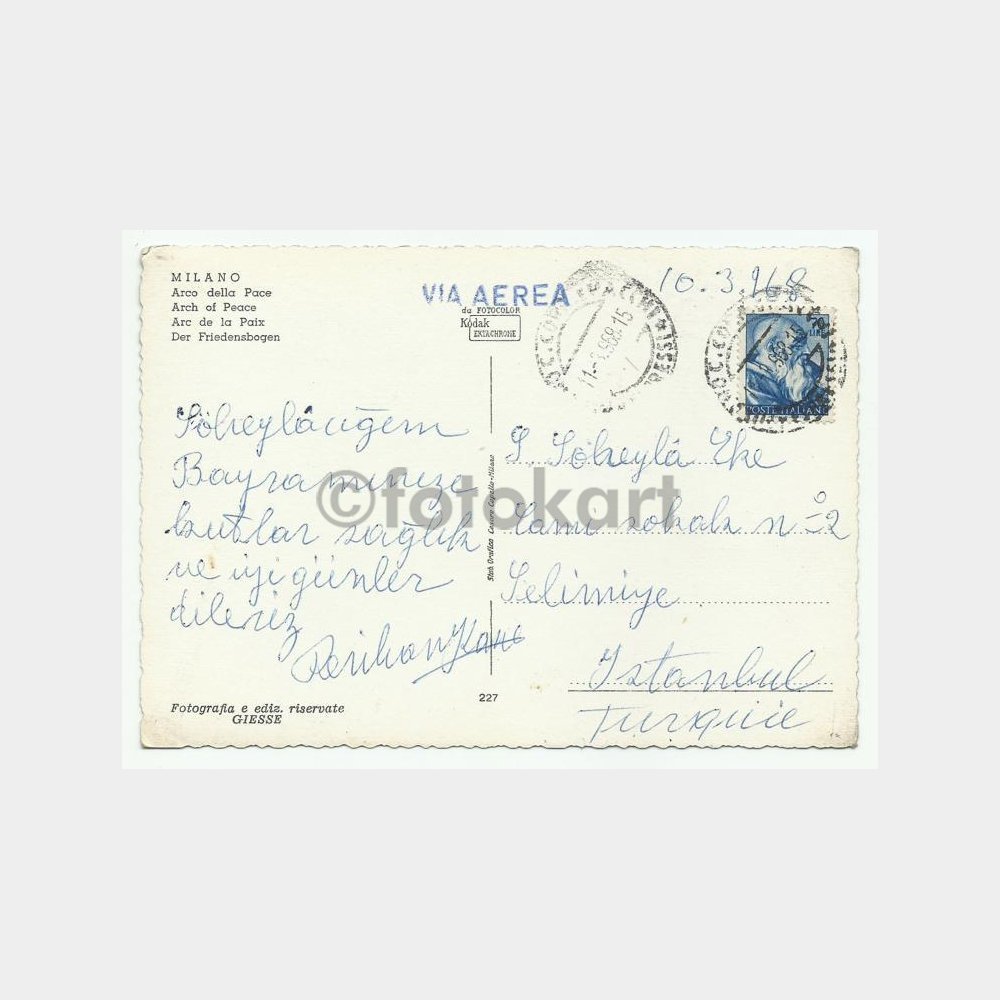 MILANO
Arco della Pace
Arch of Peace
Arc de la Paix
Der Friedensbogen
VIA AEREA
da FOTOCOLOR
Kodak
EKTACHRONE
10.3.968
1968.15
POSTE ITALIANE
Söheylâcığem
Bayramınıze
kutlar sağlık
ve iyi günler
dileriz
Perihan
S. Söheylâ Eke
sokak nº=2
Selimiye
Istanbul
Turquie
©fotokart
Stab. Grafico Cesare Capello-Milano
227
Fotografia e ediz. riservate
GIESSE